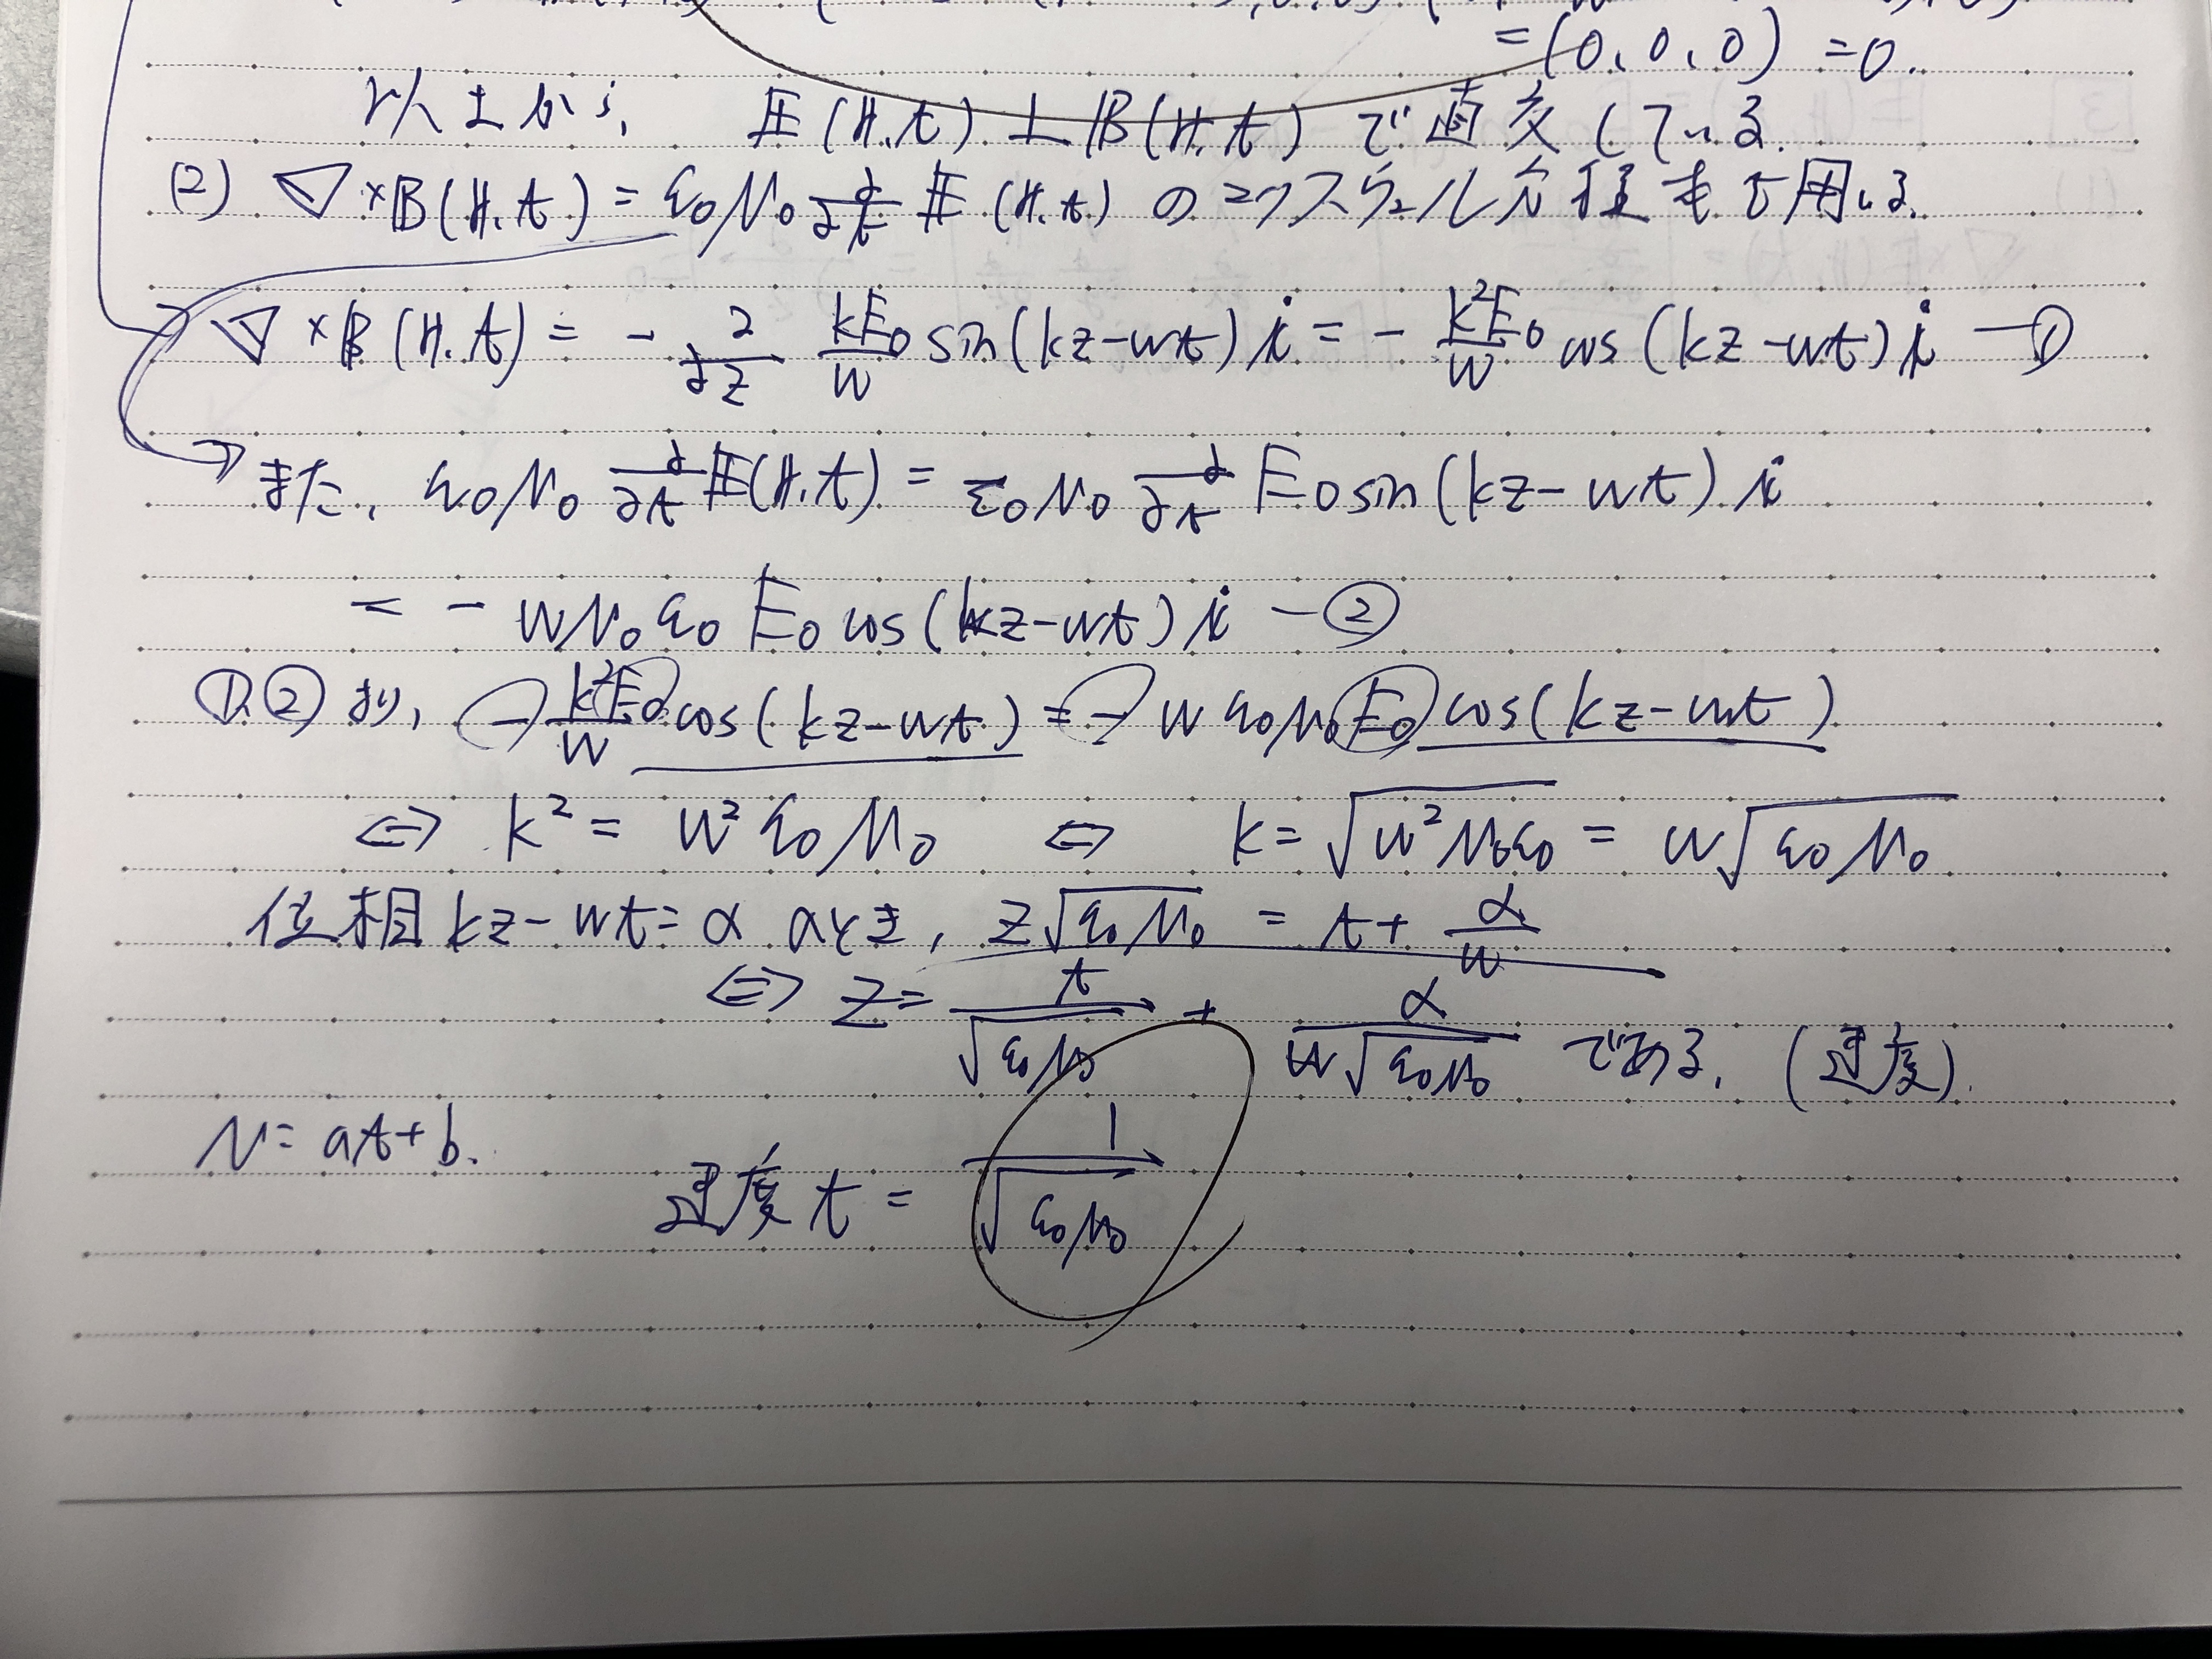 = (0, 0, 0) = 0.
以上から, E(r, t) ⊥ B(r, t) で直交している.
(2) ∇×B(r, t) = ε₀μ₀ ∂/∂t E(r, t) のマクスウェル方程式を用いる.
∇×B(r, t) = - ∂/∂z kE₀/ω sin(kz-ωt) i = - k²E₀/ω cos(kz-ωt) i —①
また, ε₀μ₀ ∂/∂t E(r, t) = ε₀μ₀ ∂/∂t E₀ sin(kz-ωt) i
= -ωμ₀ε₀ E₀ cos(kz-ωt) i —②
①,②より, - k²E₀/ω cos(kz-ωt) = - ωε₀μ₀E₀ cos(kz-ωt)
⇔ k² = ω²ε₀μ₀ ⇔ k = √(ω²μ₀ε₀) = ω√(ε₀μ₀)
位相 kz-ωt = α のとき, z√(ε₀μ₀) = t + α/ω
⇔ z = t/√(ε₀μ₀) + α/(ω√(ε₀μ₀)) である. (速度).
v = at+b.
速度 t = 1/√(ε₀μ₀)